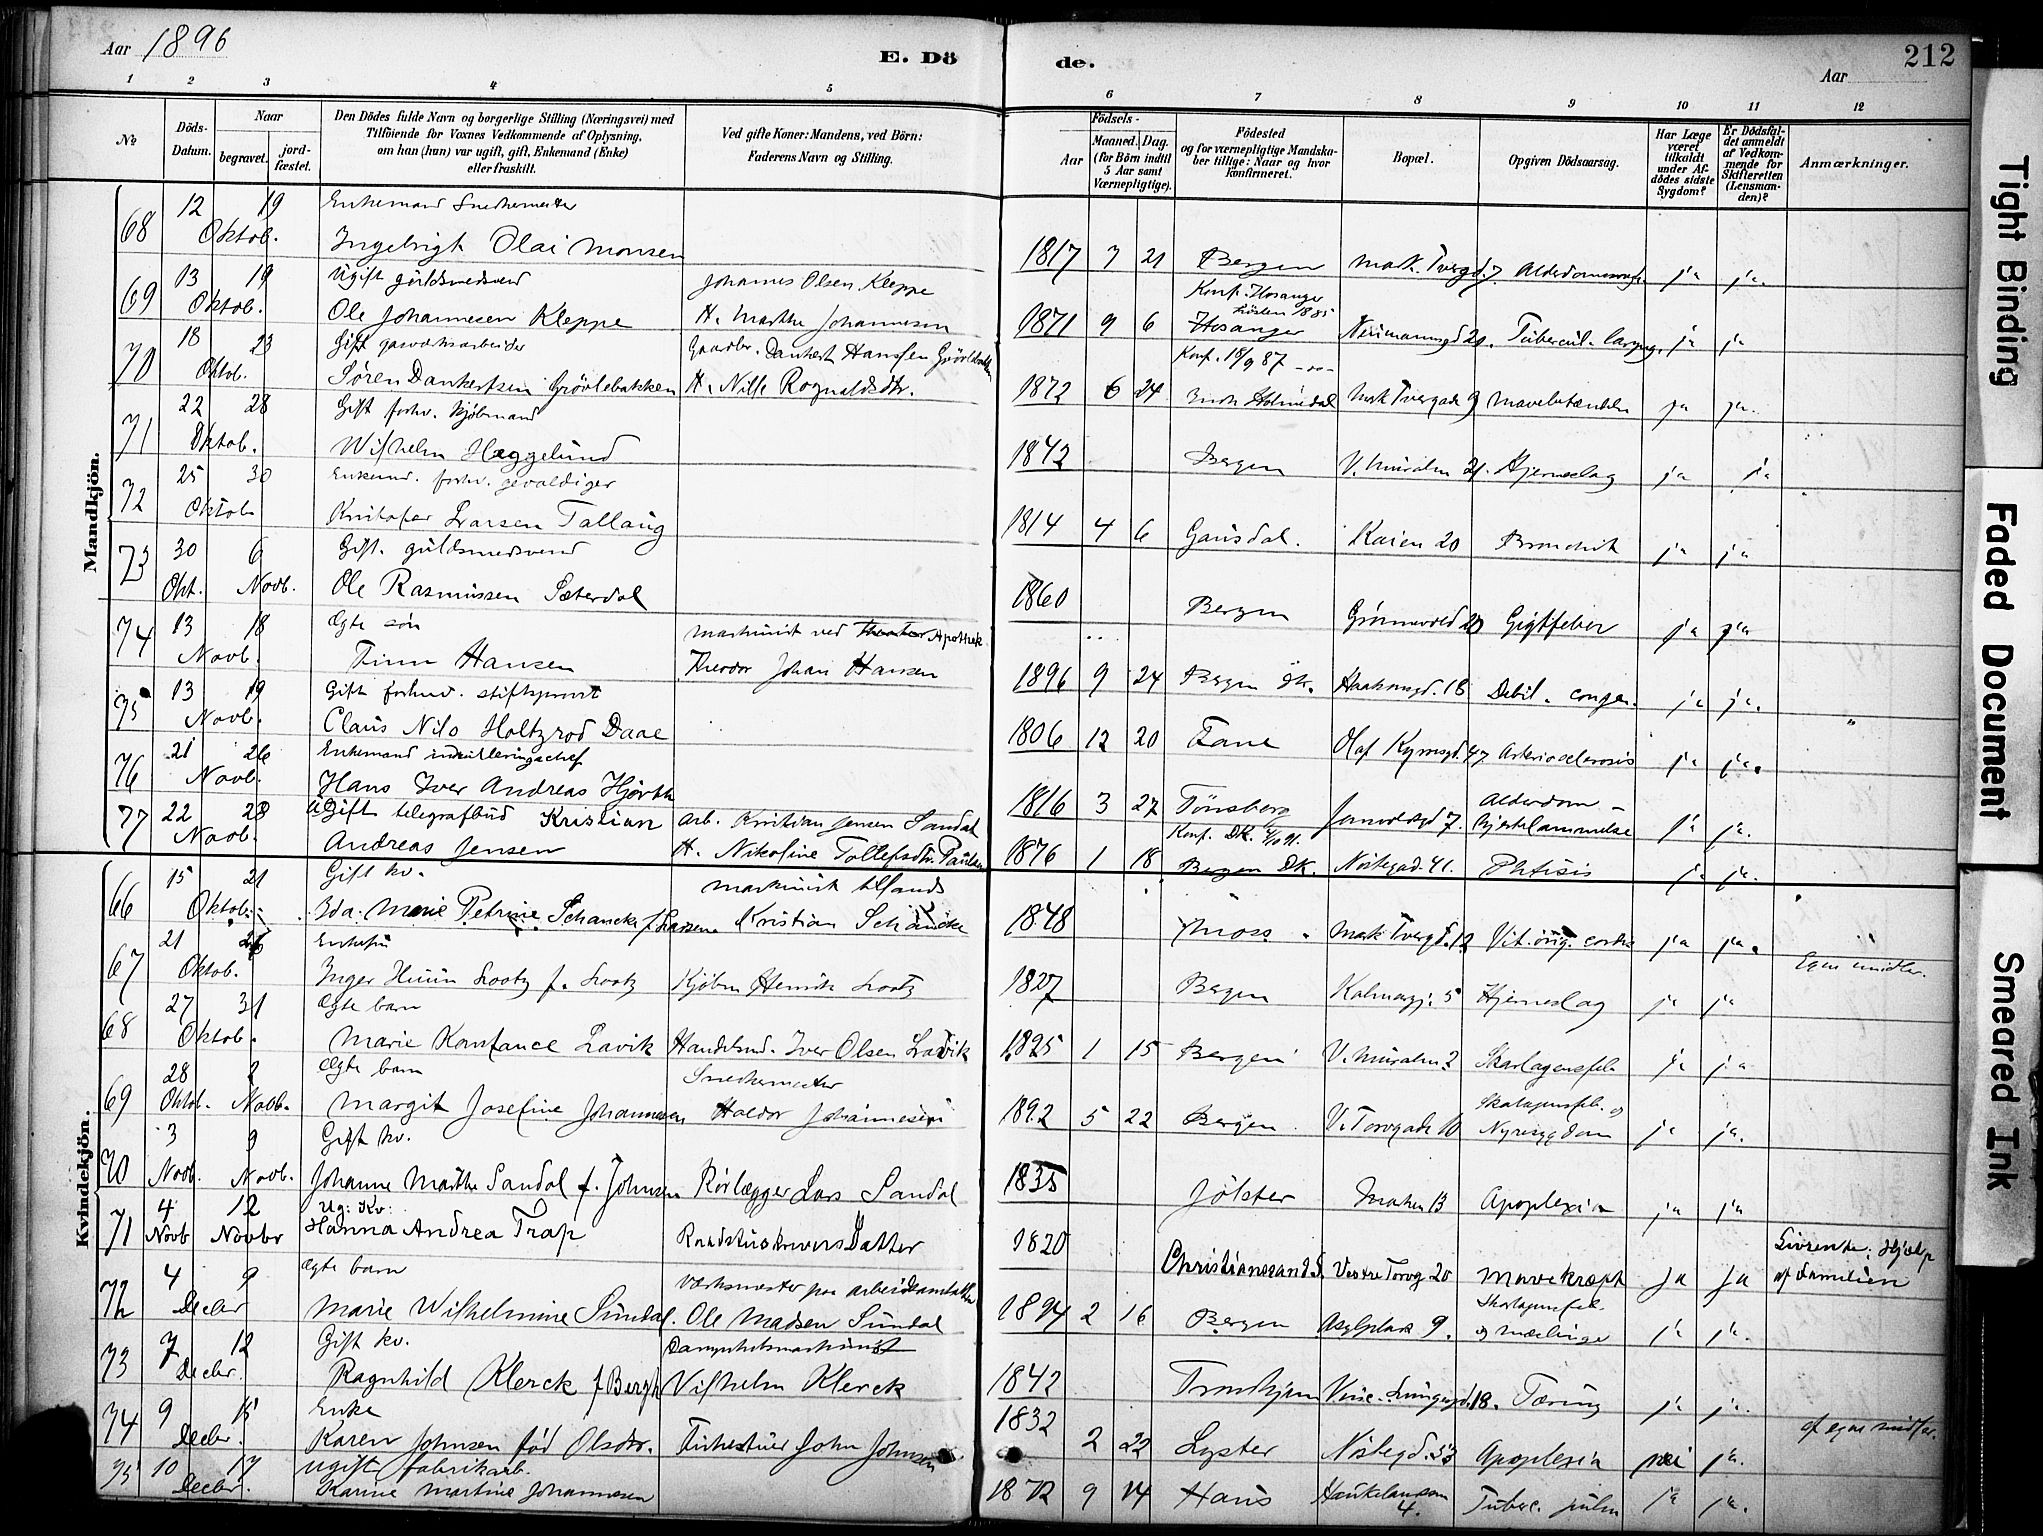 Aar 1896
E. Dö
de.
Aar
212
1 2 3 4 5 6 7 8 9 10 11 12
№
Döds-Datum.
Naar
begravet.
jord-fæstet.
Den Dödes fulde Navn og borgerlige Stilling (Næringsvei) med
Tilföiende for Voxnes Vedkommende af Oplysning,
om han (hun) var ugift, gift, Enkemand (Enke)
eller fraskilt.
Ved gifte Koner: Mandens, ved Börn:
Faderens Navn og Stilling.
Födsels-
Aar
Maaned. Dag.
(for Börn indtil
5 Aar samt
Værnepligtige).
Födested
og for værnepligtige Mandska-
ber tillige: Naar og hvor
konfirmeret.
Bopæl.
Opgiven Dödsaarsag.
Har Læge
været
tilkaldt
under Af-
dödes sidste
Sygdom?
Er Dödsfal-
det anmeldt
af Vedkom-
mende for
Skifteretten
(Lensman-
den)?
Anmærkninger.
Mandkjön.
12 19 Enkemand Snedkermester
68 Oktob. Ingebrigt Olai Monsen 1817 7 21 Bergen Mark. Tvergd. 7 ja ja.
13 19 Ugift guldsmedsvend Johannes Olsen Kleppe Konf. Hosanger
69 Oktob. Ole Johannesen Kleppe H. Marthe Johannesen 1871 9 6 Hosanger Neumannsgd 20. Tubercul. laryng. ja ja
18 23 Gift gasværksarbeider Gaardbr. Dankert Hansen Konf. 18/9 87
70 Oktob. Søren Dankertsen Grövlebakken H. Nille Rognaldsdtr. 1872 6 24 Indr Holmedal Mark Tvergade 9 ja ja.
22 28 Gift forhv. kjöbmand
71 Oktob. Wilhelm Hæggelund 1842 Bergen V. Muralm 21. Hjerneslag ja ja
25 30 Enkemd. forhv. gevaldiger
72 Oktob Kristofer Larsen Tallaug 1814 4 6 Gausdal. Kaien 20 Bronchit ja ja
30 6 Gift. guldsmedsvend
73 Okt. Novb. Ole Rasmussen Sæterdal 1860 Bergen Grönnevold 20 Gigtfeber ja ja
13 18 Ægte sön Maskinist ved Apothek
74 Novb. Finn Hansen Theodor Johan Hansen 1896 9 24 Bergen Haakonsgd. 18 Debil. congen. ja ja.
13 19 Gift forhv. stiftsprovst
75 Novb. Claus Nils Holtzrod Daae 1806 12 20 Fane Olaf Kyrresgd. 47 Arteriosclerosis ja ja.
21 26 Enkemand
76 Novb. Hans Iver Andreas Hjorth 1816 3 27 Tönsberg 7. Alderdom - Hjertelammelse ja ja.
22 28 Ugift telegrafbud Kristian arb. Kristian Jensen Sandal Konf. DK.
77 Novb. Andreas Jensen H. Nikoline Tollefsdtr. Paulsen 1876 1 18 Bergen DK. Nöstegad. 41. Phtisis ja ja.
Kvindekjön.
15 21 Gift kv. Maskinist
66 Oktob. Ida Marie Petrine Schancke f. Larsen Kristian Schancke 1848 Moss Mark Tvergd. 12 Vit. org. cordis ja ja.
21 26 Enkefru Egne midler.
67 Oktob. Inger Huun Lootz f. Lootz Kjöbm Henrik Lootz 1827 Bergen Kalmargj. 5 Hjerneslag ja ja
27 31 Ægte barn
68 Oktob. Marie Konstance Lavik Handelsmd. Iver Olsen Lavik 1895 1 15 Bergen V. Muralm 2 Skarlagensfeb ja ja
28 2 Ægte barn Snedkermester
69 Oktob. Novb. Margit Josefine Johannesen Haldor Johannesen 1892 5 22 Bergen V. Torvgade 10 Skarlagensfeb. og Nyresygdom ja ja.
3 9 Gift kv.
70 Novb. Novb. Johanne Marthe Sandal f. Johnsen Rörlægger Lars Sandal 1835 Jölster Marken 13 Apoplexia ja ja
4 12 Ug: Kv:
71 Novb Novbr Hanna Andrea Trap Raadstuskrivers Datter 1820 Christianssand S. Vestre Torvg 20 Mavekræft ja ja Livrente; Hjælp af Familien
4 9 Ægte barn Værksmester paa arbeidsanstalten
72 Decbr Marie Wilhelmine Sundal. Ole Madsen Sundal 1894 2 16 Bergen Asylplads 9. Skarlagensfeb. og mæslinger ja ja.
7 12 Gift kv. Dampskibsmaskinist
73 Decbr. Ragnhild Klerck f Bergh Vilhelm Klerck 1842 Tronhjem Lungegd. 18. Tæring ja ja.
9 15 Enke af egne midler.
74 Decbr. Karen Johnsen föd Olsdtr. John Johnsen 1832 2 22 Lyster Nöstegd. 53 Apoplexia nei ja.
10 17 Ugift fabrikarb.
75 Decbr. Karine Martine Johannesen 1872 9 14 Haus Haukelandsm 4. Tuberc. pulm ja ja.
Tight Binding
Faded Document
Smeared Ink